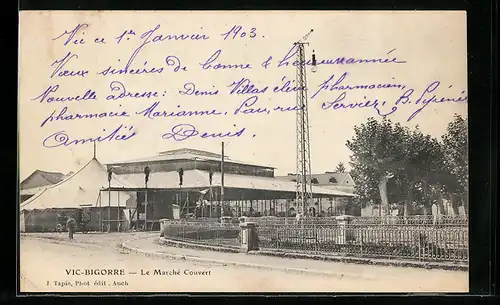 Vic ce 1er Janvier 1903.
Vœux sincères de bonne & heureuse année
Nouvelle adresse: Denis Villas élève pharmacien,
pharmacie Marianne, Pau, rue Serviez, B. Pyrénées
Amitiés Denis.
VIC-BIGORRE — Le Marché Couvert
J. Tapie, Phot édit. Auch